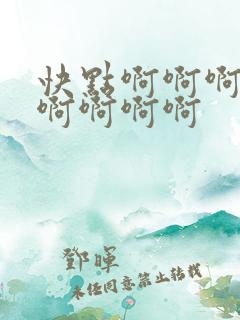 快點啊啊啊
啊啊啊啊
鄧暉
未任同意禁止转载